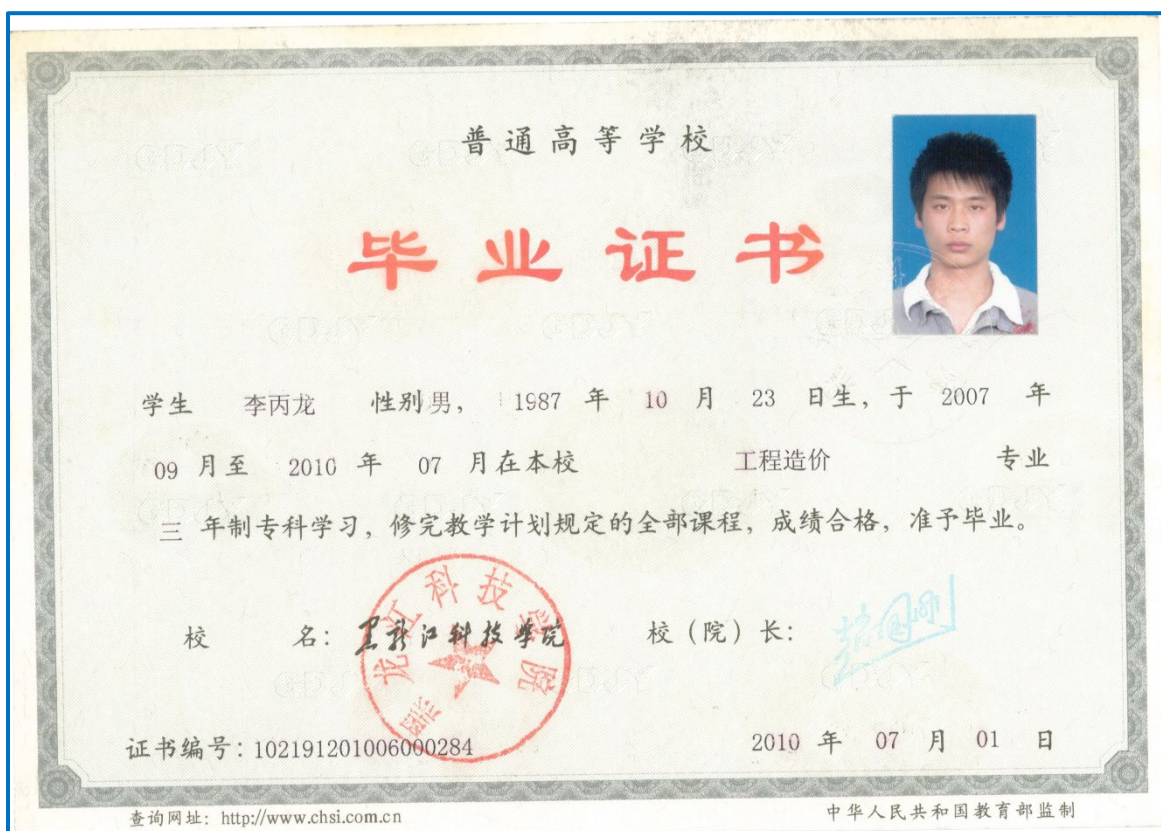 普通高等学校
毕业证书
学生 李丙龙 性别 男, 1987 年 10 月 23 日生, 于 2007 年
09 月至 2010 年 07 月在本校 工程造价 专业
三 年制专科学习, 修完教学计划规定的全部课程, 成绩合格, 准予毕业。
校 名: 黑龙江科技学院 校(院)长: 赵国刚
黑龙江科技学院
证书编号: 102191201006000284 2010 年 07 月 01 日
查询网址: http://www.chsi.com.cn 中华人民共和国教育部监制